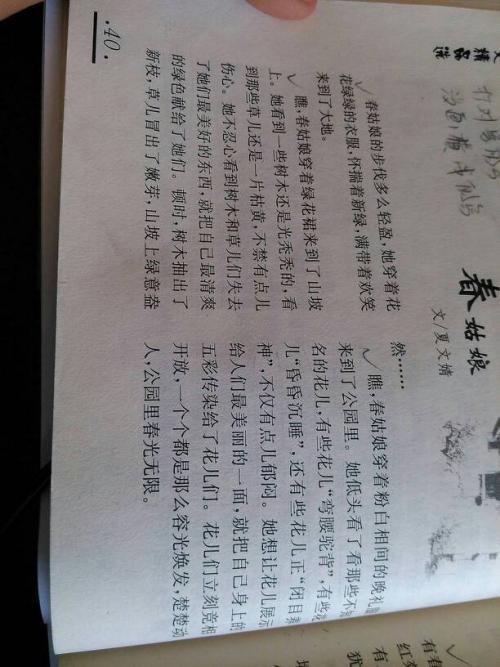 春姑娘
文/夏文婧
春姑娘的步伐多么轻盈,她穿着花
花绿绿的衣服,怀揣着新绿,满带着欢笑
来到了大地。
瞧,春姑娘穿着绿花裙来到了山坡
上。她看到一些树木还是光秃秃的,看
到那些草儿还是一片枯黄,不禁有点儿
伤心。她不忍心看到树木和草儿们失去
了她们最美好的东西,就把自己最清爽
的绿色献给了她们。顿时,树木抽出了
新枝,草儿冒出了嫩芽,山坡上绿意盎
然……
瞧,春姑娘穿着粉白相间的晚礼
来到了公园里。她低头看了看那些不
名的花儿,有些花儿“弯腰驼背”,有些
儿“昏昏沉睡”,还有些花儿正“闭目养
神”,不仅有点儿郁闷。她想让花儿展示
给人们最美丽的一面,就把自己身上的
五彩传染给了花儿们。花儿们立刻竞相
开放,一个个都是那么容光焕发,楚楚动
人,公园里春光无限。
.40.